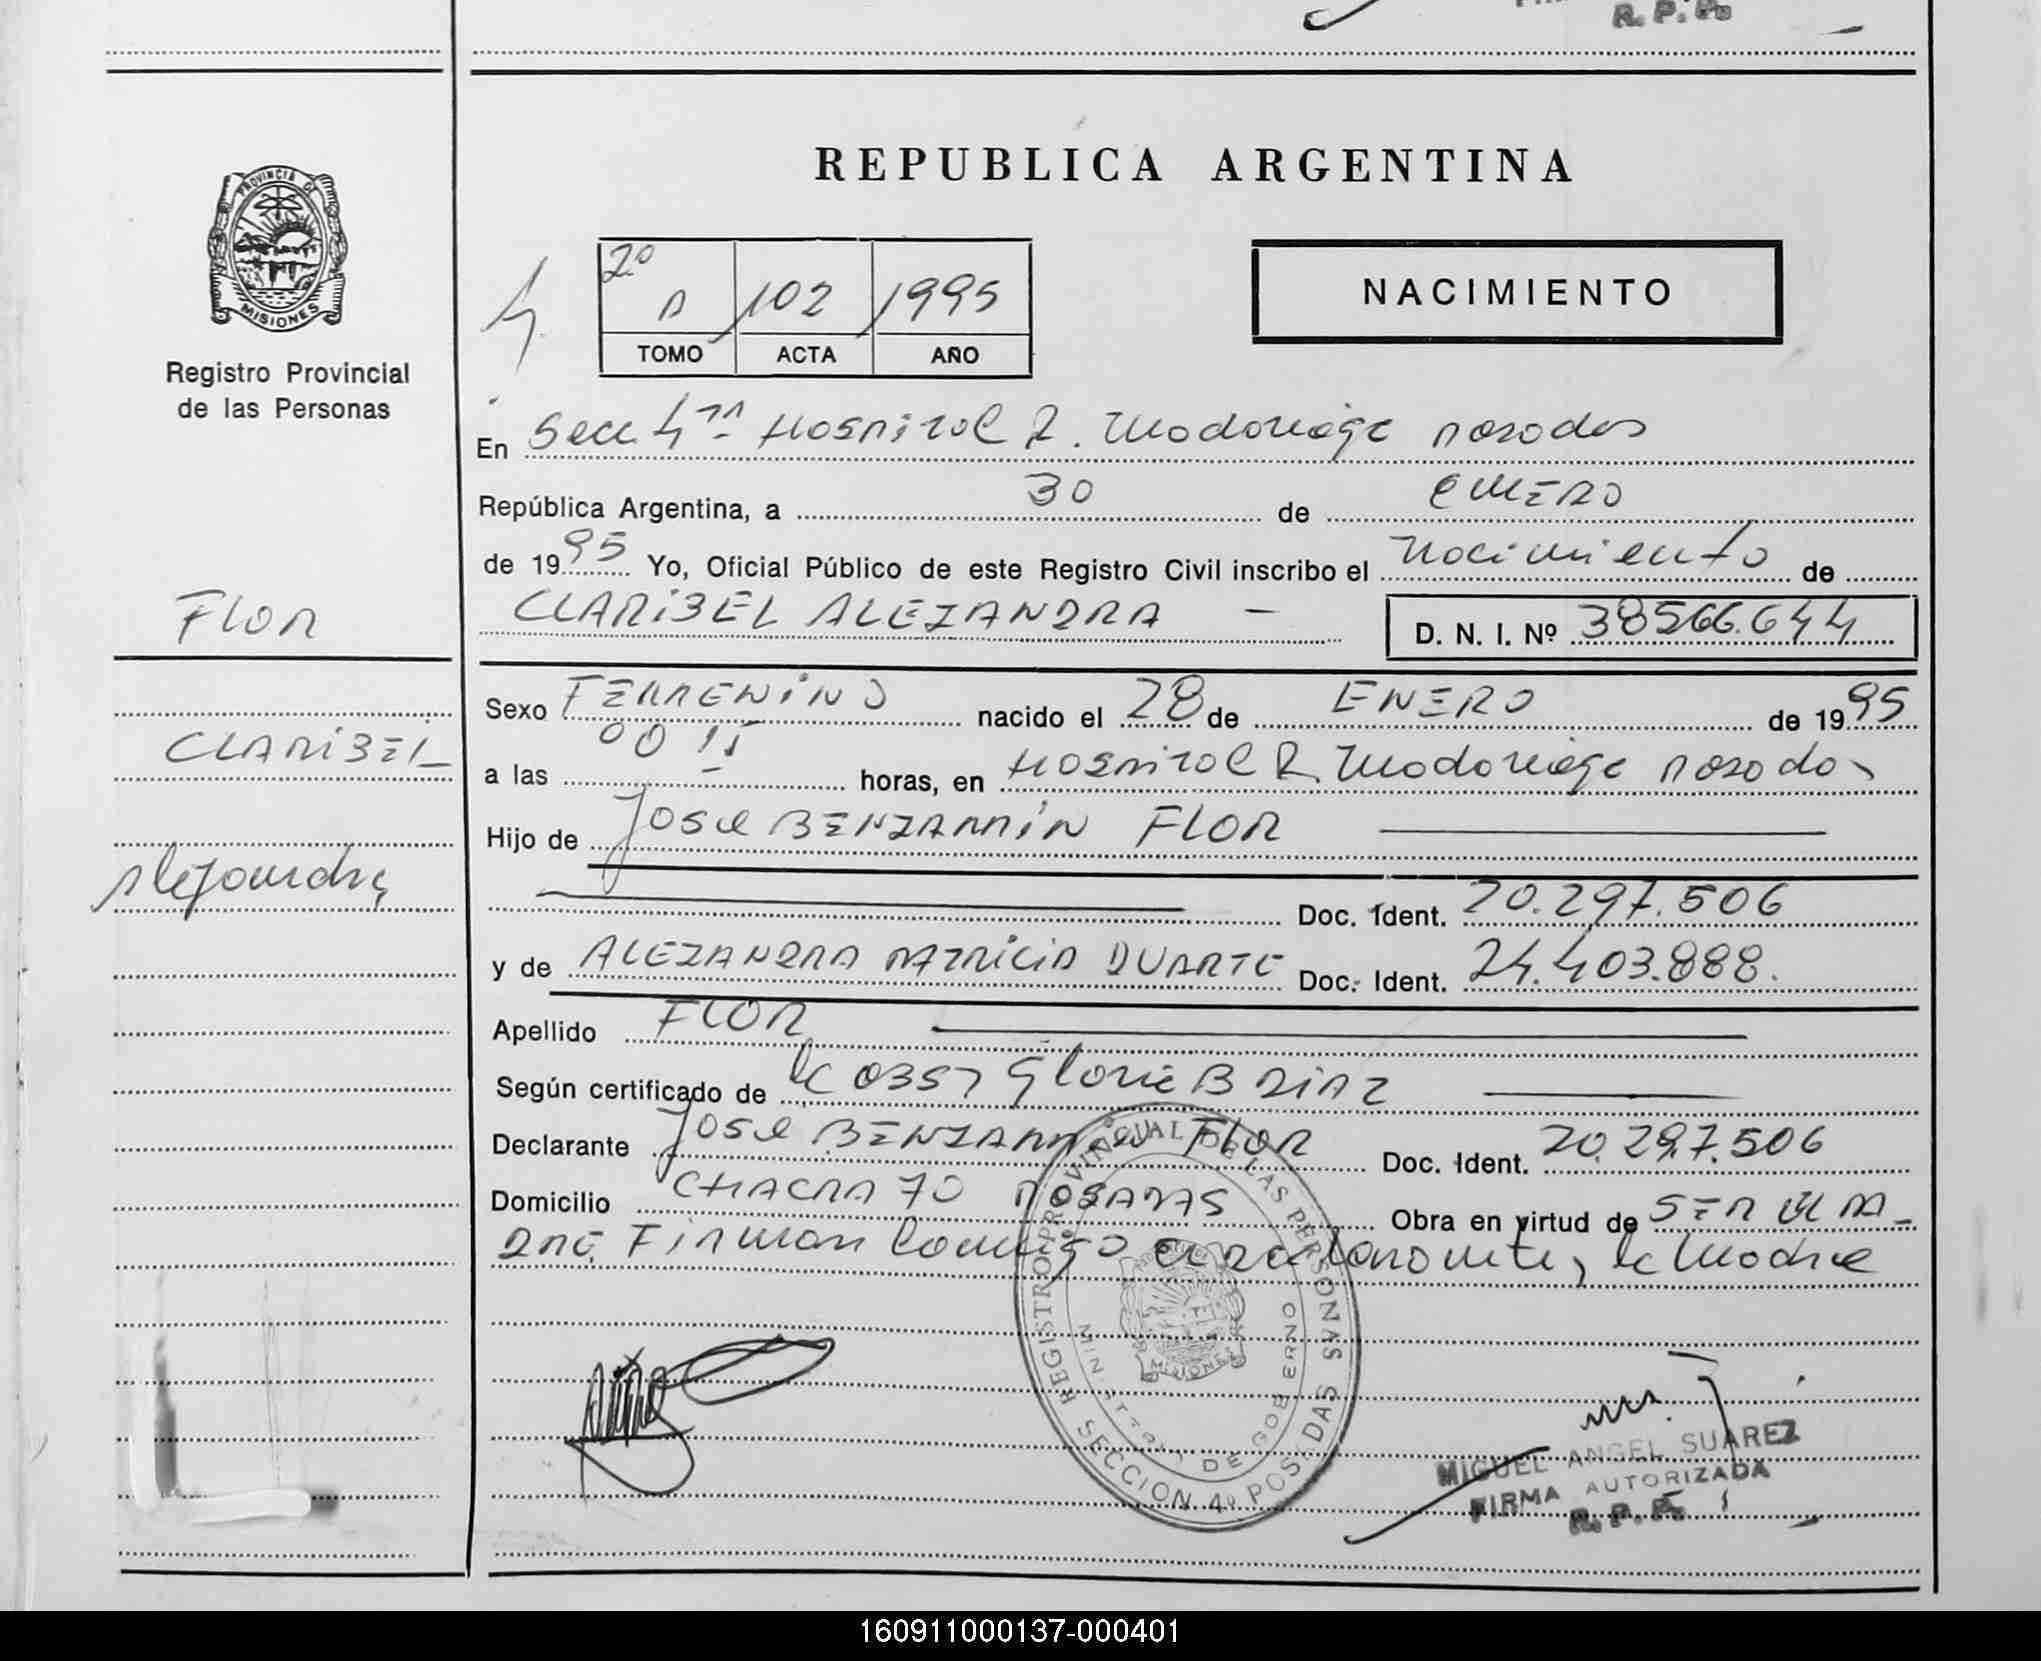 R. P. P.
REPUBLICA ARGENTINA
PROVINCIA DE
MISIONES
Registro Provincial
de las Personas
4
2º
A 102 1995
TOMO ACTA AÑO
NACIMIENTO
En Secc 4ta Hospital R. Madariaga posadas
República Argentina, a 30 de ENERO
de 1995 Yo, Oficial Público de este Registro Civil inscribo el nacimiento de
CLARIBEL ALEJANDRA — D. N. I. Nº 38566.644
FLOR
CLARIBEL
Alejandra
Sexo FEMENINO nacido el 28 de ENERO de 1995
a las 00 15 horas, en Hospital R. Madariaga posadas
Hijo de José BENJAMIN FLOR
Doc. Ident. 20.297.506
y de ALEJANDRA PATRICIA DUARTE Doc. Ident. 24.403.888.
Apellido FLOR
Según certificado de la Gloria B DIAZ
Declarante José BENJAMIN FLOR Doc. Ident. 20.297.506
Domicilio CHACRA 70 POSADAS Obra en virtud de SER EL PA-
DRE. Firman conmigo el declarante, la Madre
REGISTRO PROVINCIAL DE LAS PERSONAS
MINISTERIO DE GOBIERNO
MISIONES
SECCION 4º POSADAS
MIGUEL ANGEL SUAREZ
FIRMA AUTORIZADA
R. P. P.
160911000137-000401